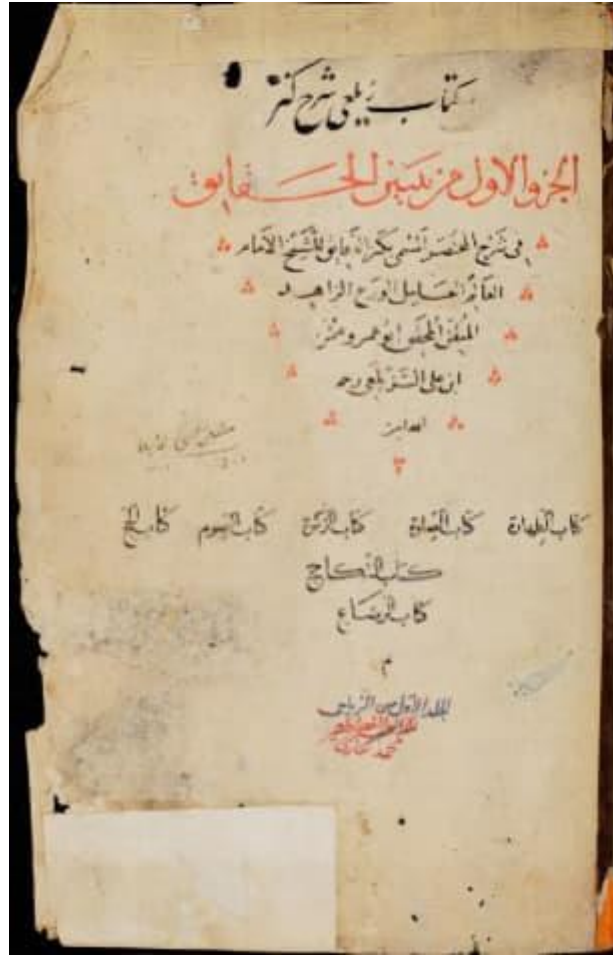 كتاب زيلعى شرح كنز
الجزو الاول من تبيين الحقايق
فى شرح المختصر المسمى بكنز الدقايق للشيخ الامام
العالم العامل الورع الزاهد
المتقن المحقق ابو عمرو عثمن
ابن على الزيلعى رحمه
الله امين
كتاب الطهارة كتاب الصلوة كتاب الزكوة كتاب الصوم كتاب الحج
كتاب النكاح
كتاب الرضاع
م
الجلد الاول من الزيلعى